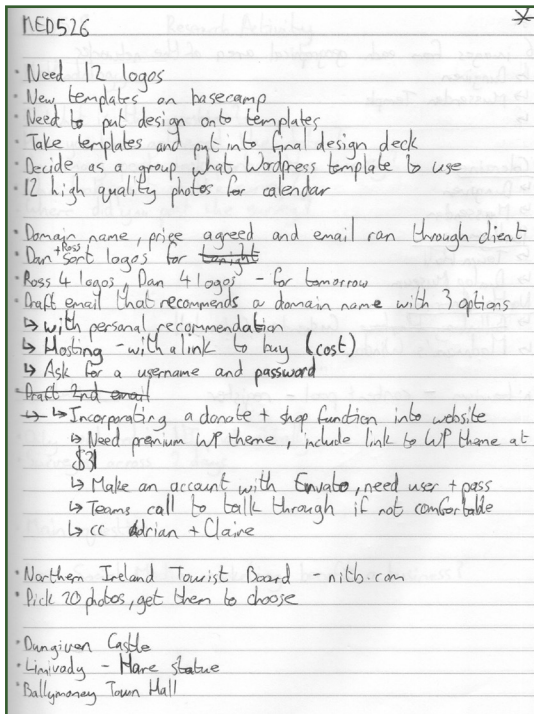 MED526
· Need 12 logos
· New templates on basecamp
· Need to put design onto templates
· Take templates and put into final design deck
· Decide as a group what Wordpress template to use
· 12 high quality photos for calendar
· Domain name, price agreed and email ran through client
· Dan + Ross sort logos for tonight
· Ross 4 logos, Dan 4 logos - for tomorrow
· Draft email that recommends a domain name with 3 options
↳ with personal recommendation
↳ Hosting - with a link to buy (cost)
↳ Ask for a username and password
· Draft 2nd email
↳ ↳ Incorporating a donate + shop function into website
↳ Need premium WP theme, include link to WP theme at
$31
↳ Make an account with Envato, need user + pass
↳ Teams call to talk through if not comfortable
↳ cc Adrian + Claire
· Northern Ireland Tourist Board - nitb.com
· Pick 20 photos, get them to choose
· Dungiven Castle
· Limivady - Hare statue
· Ballymoney Town Hall